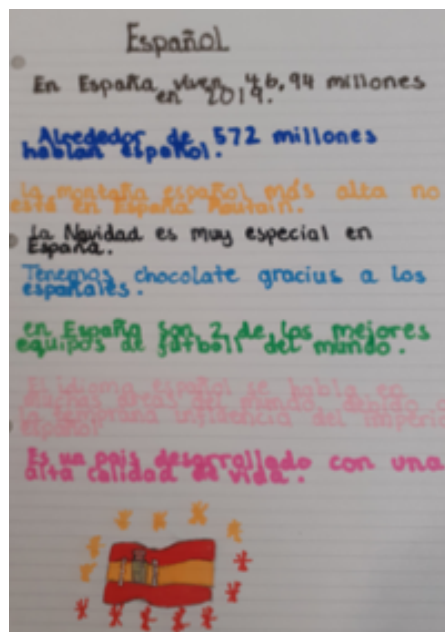 Español
En España viven 46,94 millones
en 2019.
Alrededor de 572 millones
hablan español.
La montaña español más alta no
está en España
La Navidad es muy especial en
España.
Tenemos chocolate gracius a los
españales.
en España son 2 de los mejores
equipos de fútboll del mundo.
El idioma español se habla en
muchas áreas del mundo, debido a
la temprana influencia del imperio
español
Es un pais desarrollado con una
alta calidad de vida.